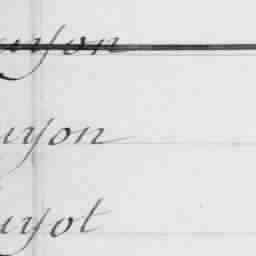 uyon
uyon
uyot